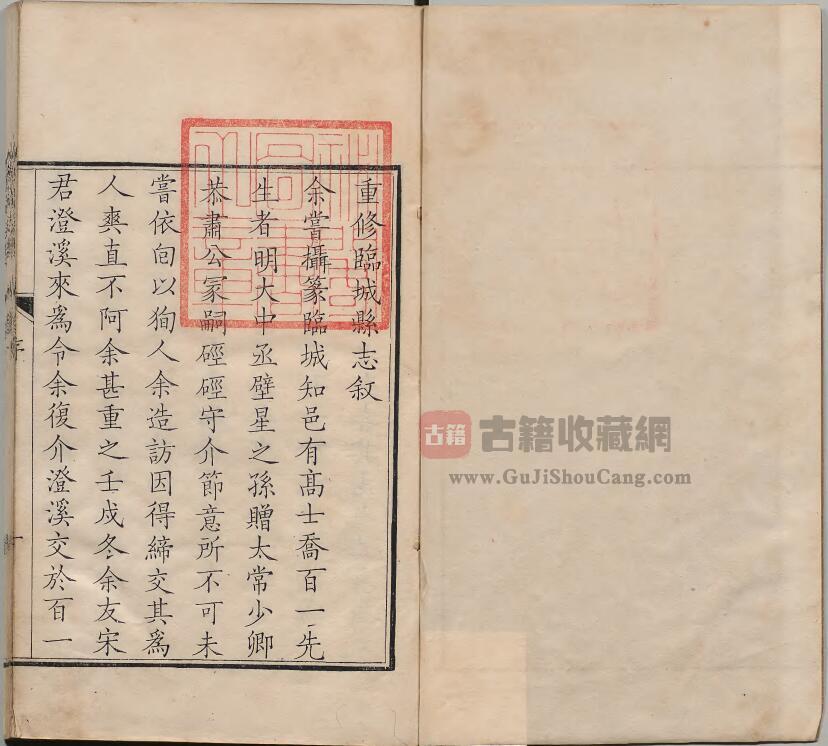 重修臨城縣志叙
余嘗攝篆臨城知邑有髙士喬百一先
生者明大中丞壁星之孫贈太常少卿
恭肅公冢嗣硜硜守介節意所不可未
嘗依囘以狥人余造訪因得締交其爲
人爽直不阿余甚重之壬戍冬余友宋
君澄溪來爲令余復介澄溪交於百一
序
一
古籍
古籍收藏網
www.GuJiShouCang.com